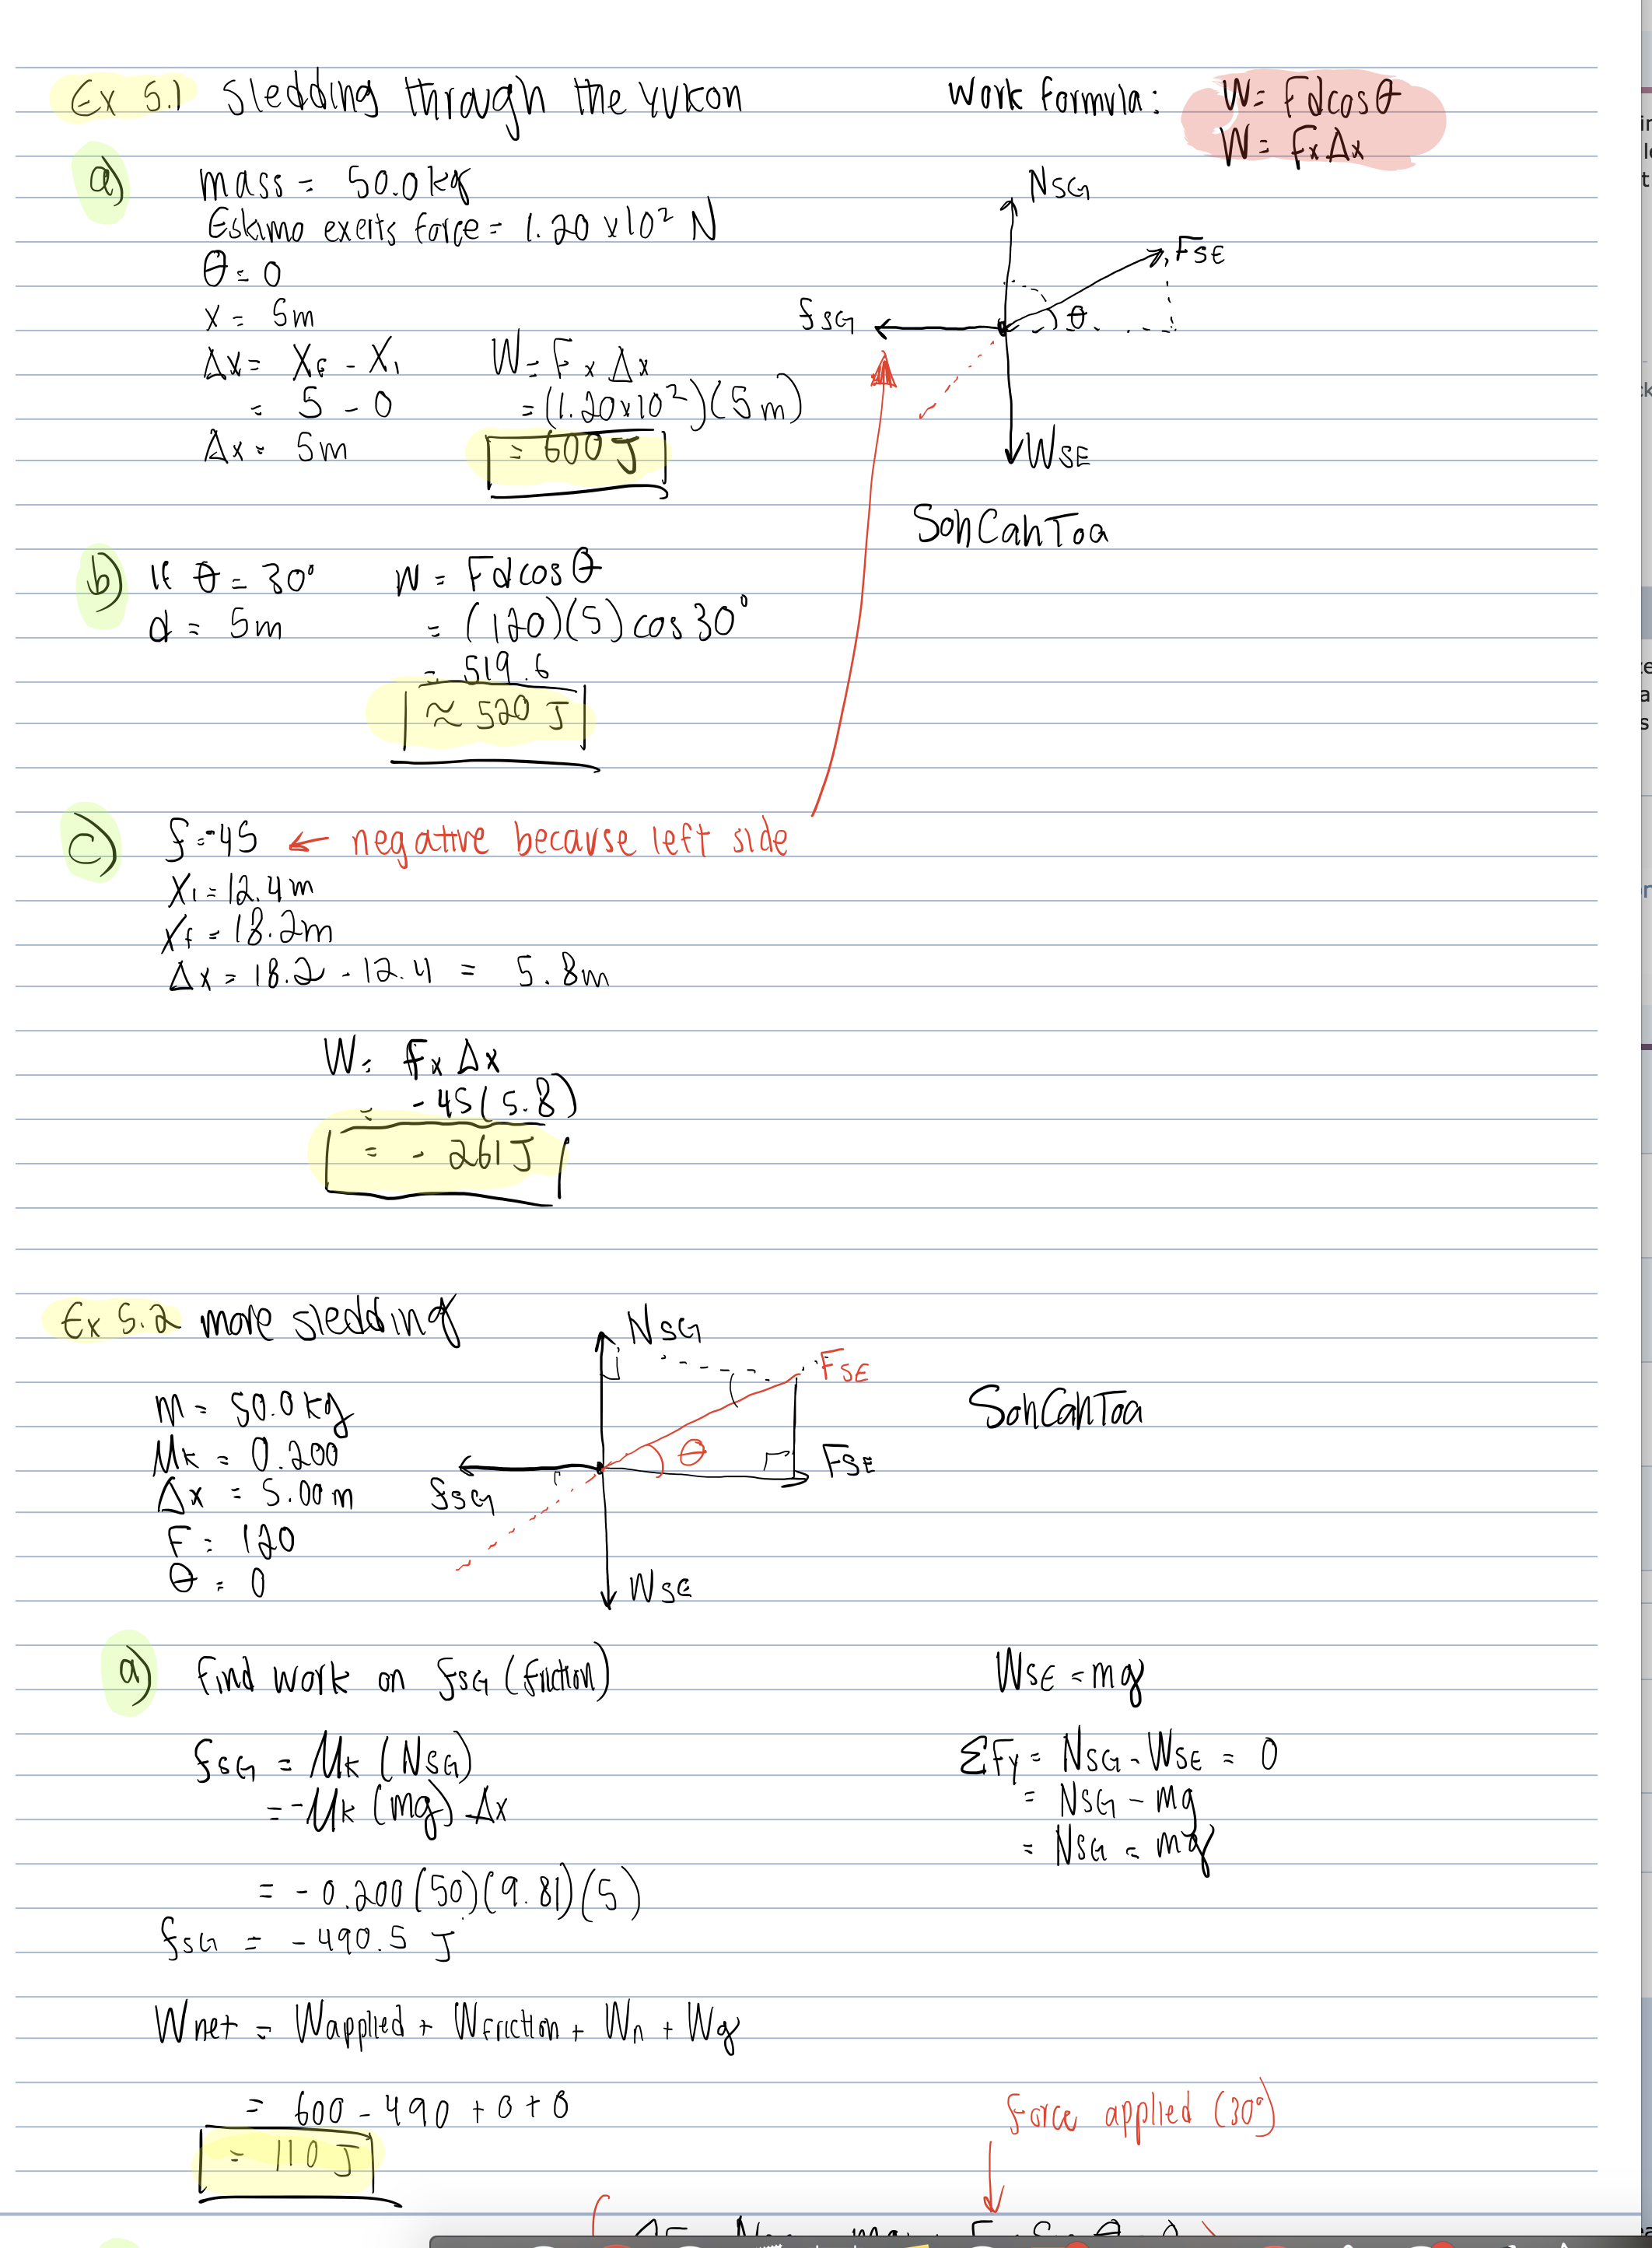 Ex 5.1 Sledding through the Yukon
Work formula: W = Fdcosθ
W = Fx Δx
a) mass = 50.0 kg
Eskimo exerts force = 1.20 x 10² N
θ = 0
x = 5m
Δx = Xf - Xi
= 5 - 0
Δx = 5m
W = Fx Δx
= (1.20x10²)(5m)
= 600 J
NSG
FSE
fSG
θ
WSE
SohCahToa
b) If θ = 30°
d = 5m
W = Fdcosθ
= (120)(5) cos 30°
= 519.6
≈ 520 J
c) f = -45 ← negative because left side
Xi = 12.4m
Xf = 18.2m
Δx = 18.2 - 12.4 = 5.8m
W = Fx Δx
= -45(5.8)
= - 261 J
Ex 5.2 more sledding
m = 50.0 kg
μk = 0.200
Δx = 5.00 m
F = 120
θ = 0
NSG
FSE
θ
FSE
fSG
WSE
SohCahToa
a) Find work on fSG (friction)
fSG = μk (NSG)
= -μk (mg) Δx
= - 0.200 (50)(9.81)(5)
fSG = - 490.5 J
WSE = mg
ΣFy = NSG - WSE = 0
= NSG - mg
= NSG = mg
Wnet = Wapplied + Wfriction + Wn + Wg
= 600 - 490 + 0 + 0
= 110 J
Force applied (30°)